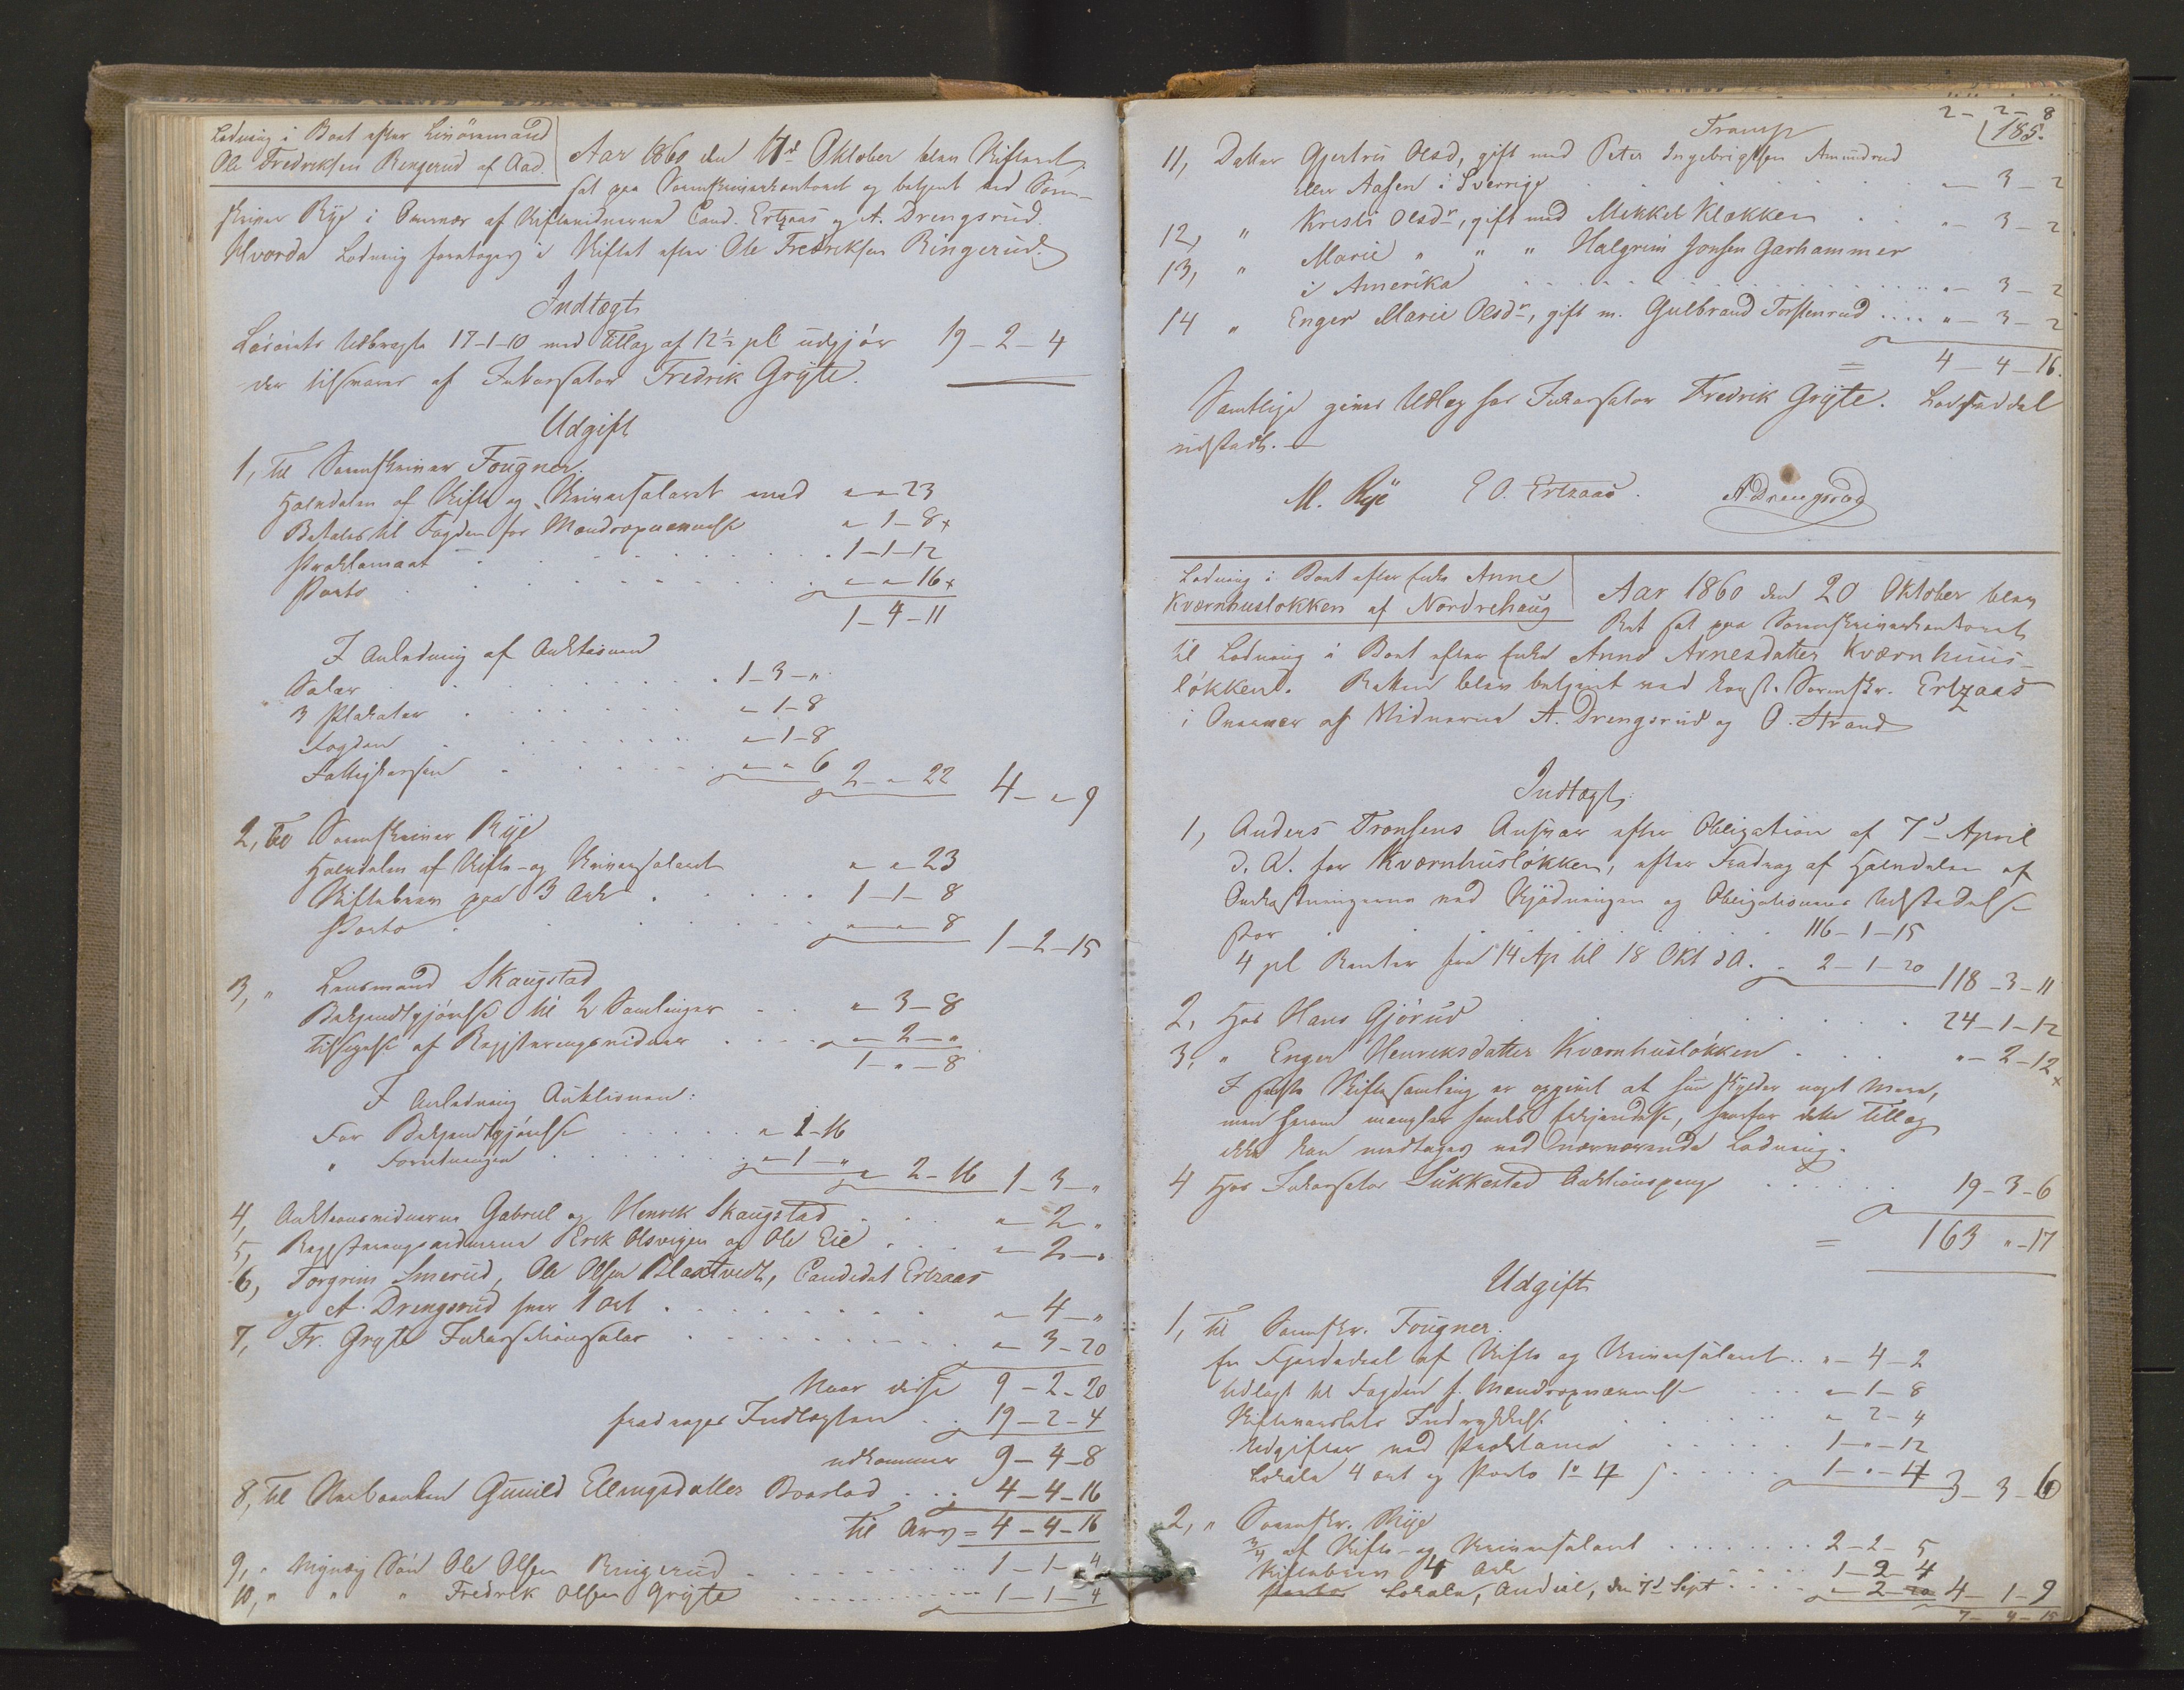 Lodning i Boet efter Livöremand
Ole Fredriksen Ringerud af Aad.
Aar 1860 den 17d Oktober blev Skifteret
sat paa Sorenskriverkontoret og betjent ved Soren-
skriver Rye i Overvær af Skiftevidnerne Cand. Ertzaas og A. Drengsrud.
Hvorda Lodning foretoges i Skiftet efter Ole Fredriksen Ringerud.
Indtægt
Lösörets Udbragte 17-1-10 med Tillæg af 12½ pC udgjör 19-2-4
der tilsvares af Inkassator Fredrik Gryte.
Udgift
1, Til Sorenskriver Fougner.
Halvdelen af Skifte og Skriversalaret med " " 23
Betales til Fogden for Mandsopnævnelse " 1-8 x
Proklamaet . . . 1-1-12
Porto . . . " " 16 x
1-4-11
I Anledning af Auktionen
Salær . . . 1-3-"
3 Plakater . . . " 1-8
Fogden . . . " 1-8
Fattigkassen . . . " " 6 2-"-22 4-"-9
2, Til Sorenskriver Rye
Halvdelen af Skifte- og Skriversalaret " " 23
Skiftebrev paa 3 Ark . . . 1-1-8
Porto . . . " " 8 1-2-15
3, " Lensmand Skaugstad
Bekjendtgjörelse til 2 Samlinger . . " 3-8
Tilsigelse af Registreringsvidner . . . " 2-"
1-"-8
I Anledning Auktionen:
For Bekjendtgjörelse . . . " 1-16
" Forretningen . . . " 1-" " 2-16 1-3-"
4, Auktionsvidnerne Gabriel og Henrik Skaugstad . . . " 2 "
5, Registreringsvidnerne Erik Olsvigen og Ole Eie . . . " 2-"
6, Torgrim Smerud, Ole Olsen Blaxtvedt, Candidat Ertzaas
og A. Drengsrud hver 1 Ort . . . " 4-"
7, Fr. Gryte Inkassationssalær . . . " 3-20
Naar disse 9-2-20
fradrages Indtægten . . 19-2-4
udkommer 9-4-8
8, Til Sterboenken Gunild Ellingsdatter Boeslod . . . 4-4-16
Til Arv = 4-4-16
9, " Myndig Sön Ole Olsen Ringerud . . . 1-1-4
10, " " " Fredrik Olsen Gryte . . . 1-1-4
2-2-8
Transp
185.
11, Datter Gjertrud Olsd, gift med Peter Ingebrigtsen Amundrud
eller Aasen i Sverrige . . . " 3-2
12, " Kristi Olsdr, gift med Mikkel Klækken . . . " 3-2
13, " Marie " " " Halgrim Jonsen Garhammer
i Amerika . . . " 3-2
14 " Enger Marie Olsdr, gift m. Gulbrand Torstenrud . . . . " 3-2
= 4-4-16.
Samtlige gives Udlæg hos Inkassator Fredrik Gryte. Lodseddel
udstedt.
M. Rye E O. Ertzaas. A Drengsrud
Lodning i Boet efter Enke Anne
Kværnhuslökken af Nordrehaug
Aar 1860 den 20 Oktober blev
Ret sat paa Sorenskriverkontoret
til Lodning i Boet efter Enke Anne Arnesdatter Kværnhuus-
lökken. Retten blev betjent ved const. Sorenskr. Ertzaas
i Overvær af Vidnerne A. Drengsrud og O. Strand
Indtægt.
1, Anders Tronsens Ansvar efter Obligation af 7d April
d. A. for Kværnhuslökken, efter Fradrag af Halvdelen af
Omkostningerne ved Skjödningen og Obligationens Udstedelse
stor . . . 116-1-15
4 pC Renter fra 14 Ap til 18 Okt d A. . 2-1-20 118-3-11
2, Hos Hans Gjörud . . . 24-1-12
3, " Enger Henriksdatter Kværnhuslökken . . . " 2-12 x
I sidste Skiftesamling er opgivet at hun skylder noget mere,
men herom mangler hendes Erkjendelse, hvorfor dette Tillæg
ikke kan medtages ved nærværende Lodning.
4 Hos Inkassator Sukkestad Auktionspenge . . . 19-3-6
= 163 "-17
Udgift
1, Til Sorenskr. Fougner.
En Fjerdedel af Skifte og Skriversalaret . . " 4-2
Udlagt til Fogden f. Mandsopnævnelse . . . " 1-8
Skiftevarslets Indrykkelse . . . " 2-4
Udgifter ved Proklama . . . 1-"-12
Lokale 4 ort og Porto 1"-4 . . . 1-"-4 3-3-6
2, " Sorenskr. Rye
¾ af Skifte- og Skriversalaret . . . 2-2-5
Skiftebrev 4 Ark 1-2-4
Porto Lokale, And. til, den 7d Sept . . . " 2 20 4-1-9
7-4-15